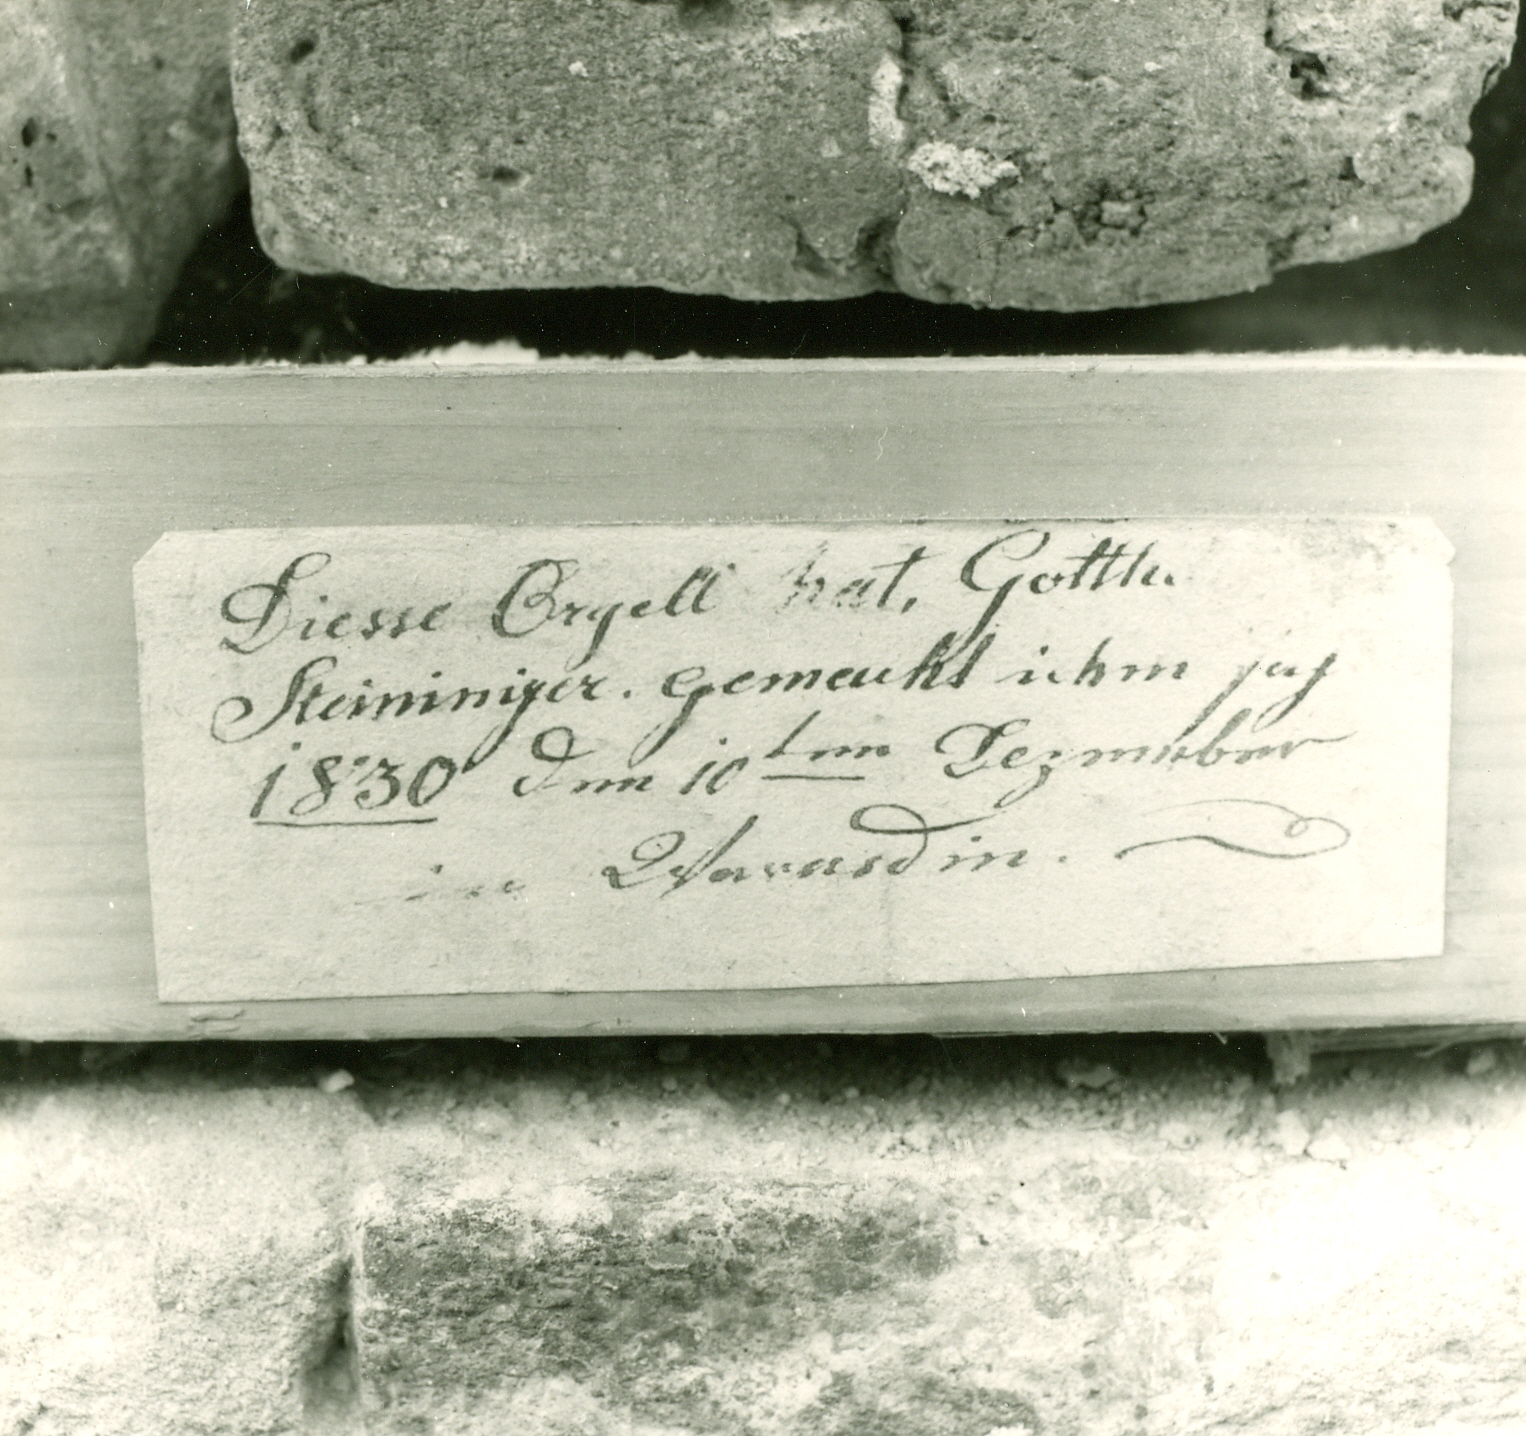 Diesse Orgell hat, Gotth.
Steininiger. gemacht ichm jag
1830 den 10ten Dezmeber
in Warasdin.